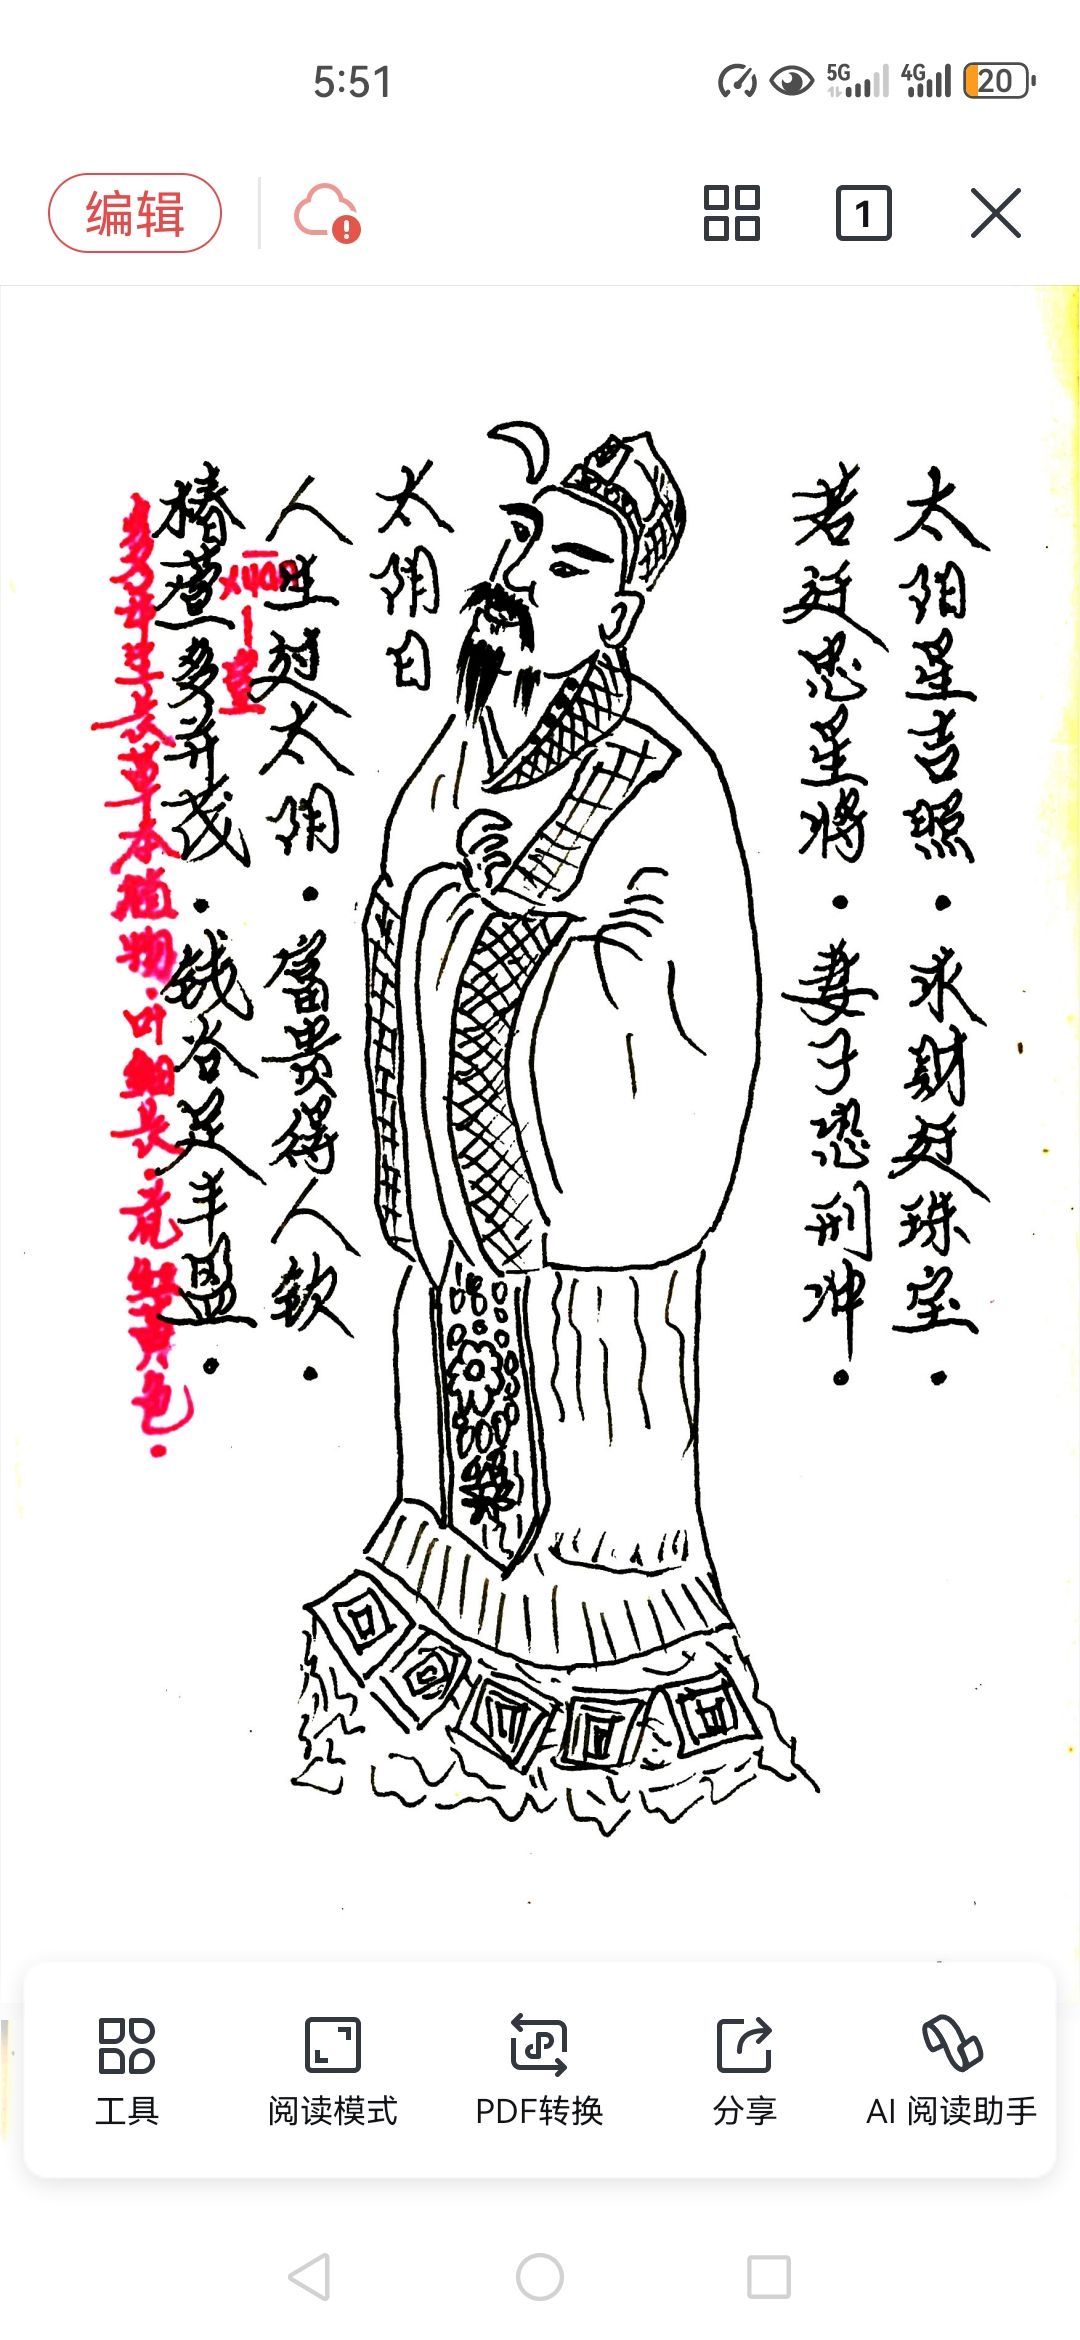 5:51
5G
4G
20
编辑
1
太阳星吉照·求财廷珠宝·
若廷恶星将·妻子恐刑冲·
太阴日
人生廷太阴·富贵得人钦·
xuān
一萱
椿萱多并茂·钱谷足丰盈·
多年生长草本植物·叶细长·花红黄色·
工具
阅读模式
PDF转换
分享
AI 阅读助手